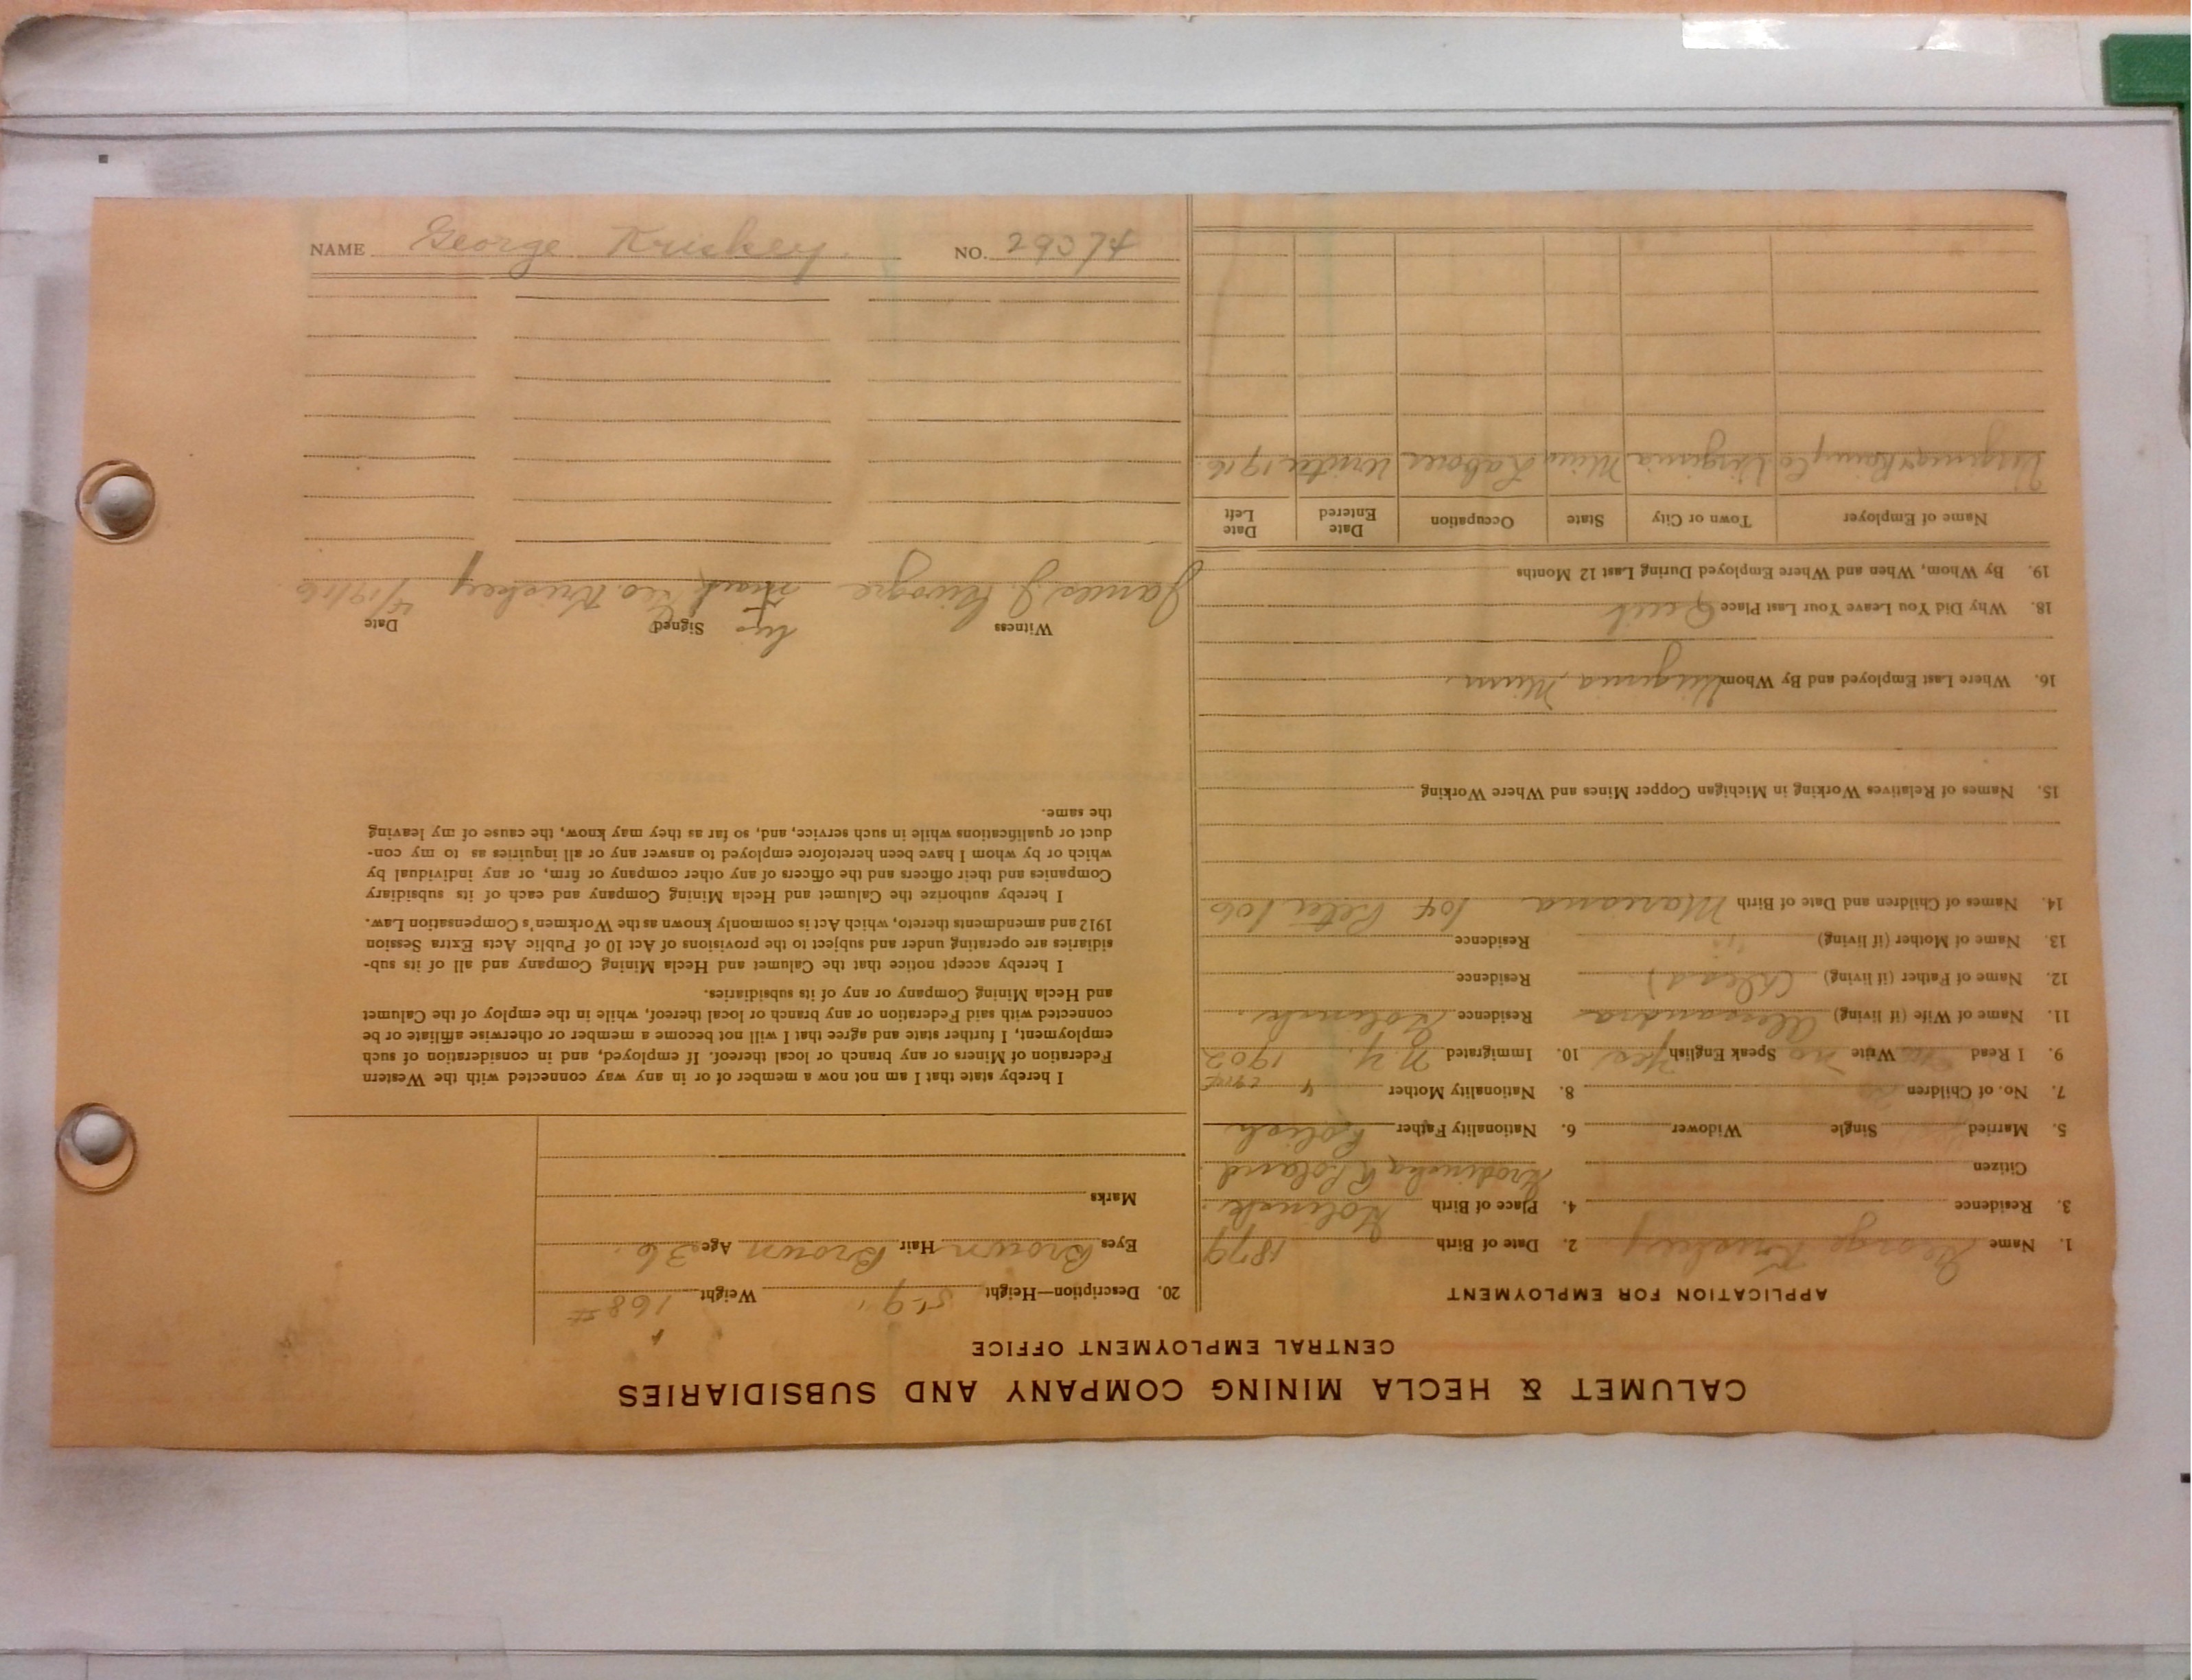 CALUMET & HECLA MINING COMPANY AND SUBSIDIARIES
CENTRAL EMPLOYMENT OFFICE
APPLICATION FOR EMPLOYMENT
1. Name George Kriskey 2. Date of Birth 1879
3. Residence 4. Place of Birth
Citizen Poland
5. Married Single Widower 6. Nationality Father Polish
7. No. of Children 8. Nationality Mother
9. I Read no Write no Speak English Yes 10. Immigrated N.Y. 1902
11. Name of Wife (if living) Alexandra Residence
12. Name of Father (if living) (Dead) Residence
13. Name of Mother (if living) Residence
14. Names of Children and Date of Birth Mariana 104 Peter 106
15. Names of Relatives Working in Michigan Copper Mines and Where Working
16. Where Last Employed and By Whom Virginia, Minn.
18. Why Did You Leave Your Last Place Quit
19. By Whom, When and Where Employed During Last 12 Months
Name of Employer Town or City State Occupation Date Entered Date Left
Virginia & Rainy Co Virginia Minn Laborer Winter 1916
20. Description—Height 5'-9" Weight 168 #
Eyes Brown Hair Brown Age 36
Marks
I hereby state that I am not now a member of or in any way connected with the Western
Federation of Miners or any branch or local thereof. If employed, and in consideration of such
employment, I further state and agree that I will not become a member or otherwise affiliate or be
connected with said Federation or any branch or local thereof, while in the employ of the Calumet
and Hecla Mining Company or any of its subsidiaries.
I hereby accept notice that the Calumet and Hecla Mining Company and all of its sub-
sidiaries are operating under and subject to the provisions of Act 10 of Public Acts Extra Session
1912 and amendments thereto, which Act is commonly known as the Workmen's Compensation Law.
I hereby authorize the Calumet and Hecla Mining Company and each of its subsidiary
Companies and their officers and the officers of any other company or firm, or any individual by
which or by whom I have been heretofore employed to answer any or all inquiries as to my con-
duct or qualifications while in such service, and, so far as they may know, the cause of my leaving
the same.
Witness his Signed Date
James J. mark Geo. Kriskey 4/19/16
NAME George Kriskey. NO. 29074